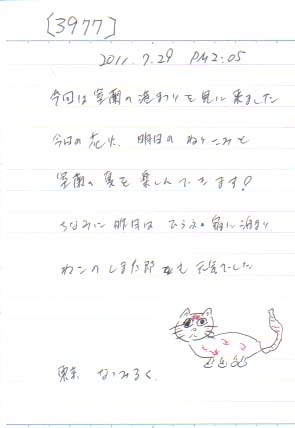 [3977]
2011.7.29 PM2:05
今回は室蘭の港まつりを見に来ました
今日の花火、明日のねりこみと
室蘭の夏を楽しんできます!
ちなみに昨日は ひらふの宿に泊まり
ねこのしま太郎も元気でした
東京 なつみろく